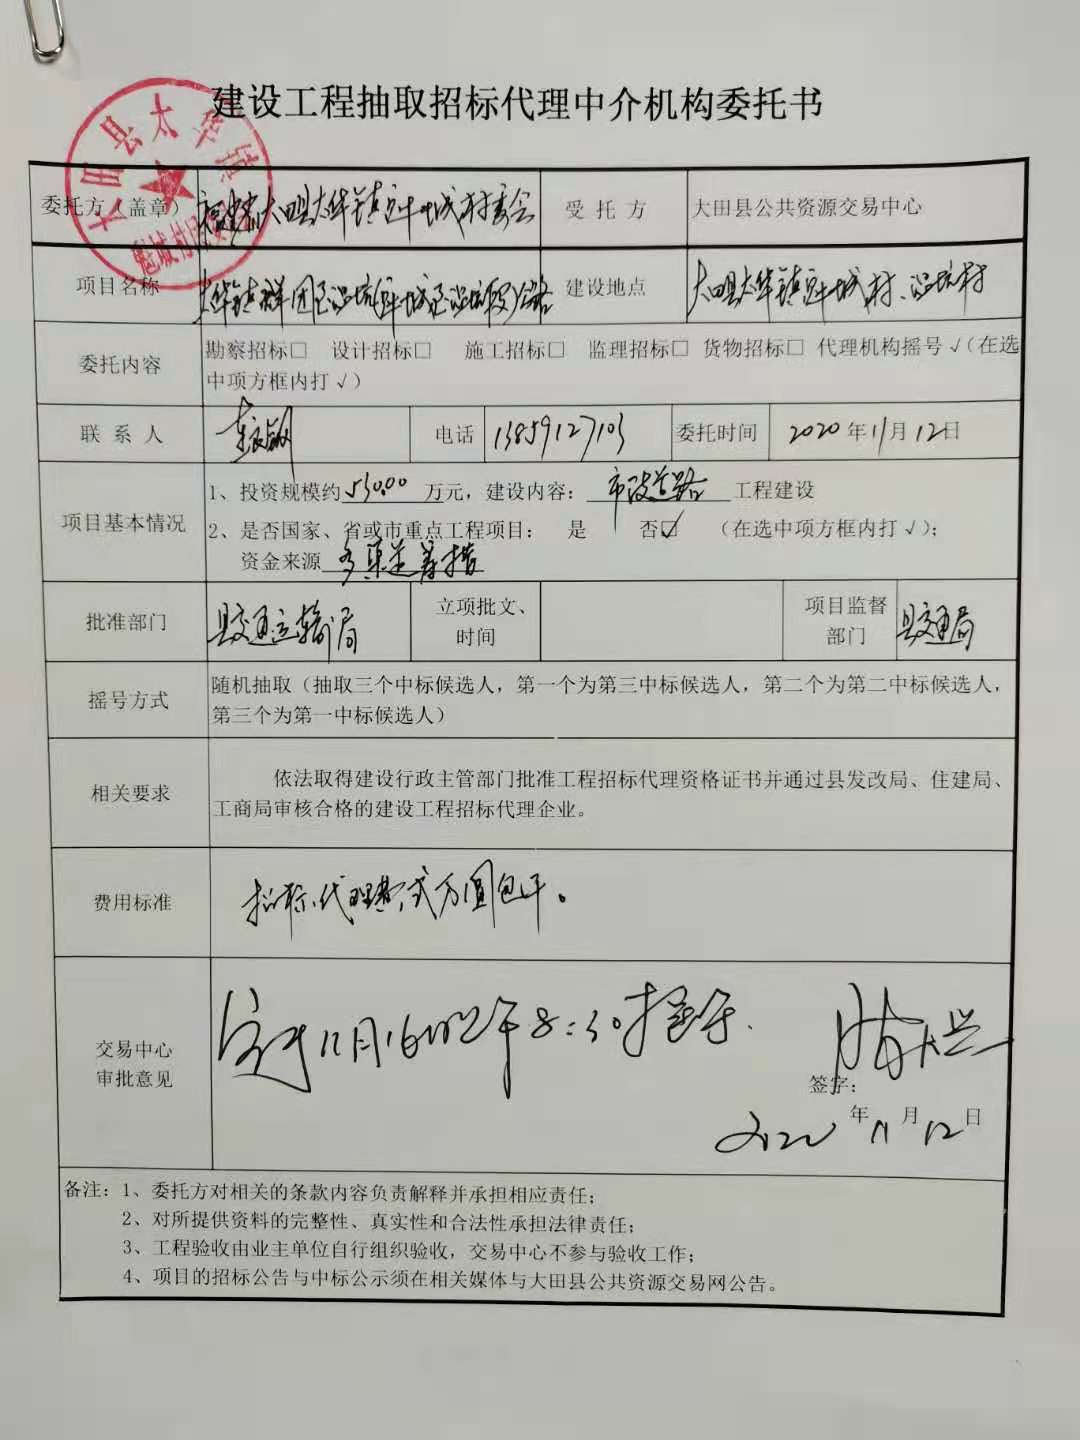 建设工程抽取招标代理中介机构委托书
大田县太华镇
魁城村民
委托方（盖章） 福建省大田县太华镇魁城村委会 受托方 大田县公共资源交易中心
项目名称 建设地点 大田县太华镇魁城村、
委托内容 勘察招标□ 设计招标□ 施工招标□ 监理招标□ 货物招标□ 代理机构摇号√（在选
中项方框内打√）
联系人 电话 13859127103 委托时间 2020年11月12日
项目基本情况 1、投资规模约530.00万元，建设内容：市政道路工程建设
2、是否国家、省或市重点工程项目： 是 否☑ （在选中项方框内打√）；
资金来源 多渠道筹措
批准部门 县交通运输局 立项批文、时间 项目监督部门 县交通局
摇号方式 随机抽取（抽取三个中标候选人，第一个为第三中标候选人，第二个为第二中标候选人，
第三个为第一中标候选人）
相关要求 依法取得建设行政主管部门批准工程招标代理资格证书并通过县发改局、住建局、
工商局审核合格的建设工程招标代理企业。
费用标准 招标代理费贰万圆包干。
交易中心
审批意见
定于11月16日上午8:30摇号.
签字：
2020年11月12日
备注：1、委托方对相关的条款内容负责解释并承担相应责任；
2、对所提供资料的完整性、真实性和合法性承担法律责任；
3、工程验收由业主单位自行组织验收，交易中心不参与验收工作；
4、项目的招标公告与中标公示须在相关媒体与大田县公共资源交易网公告。